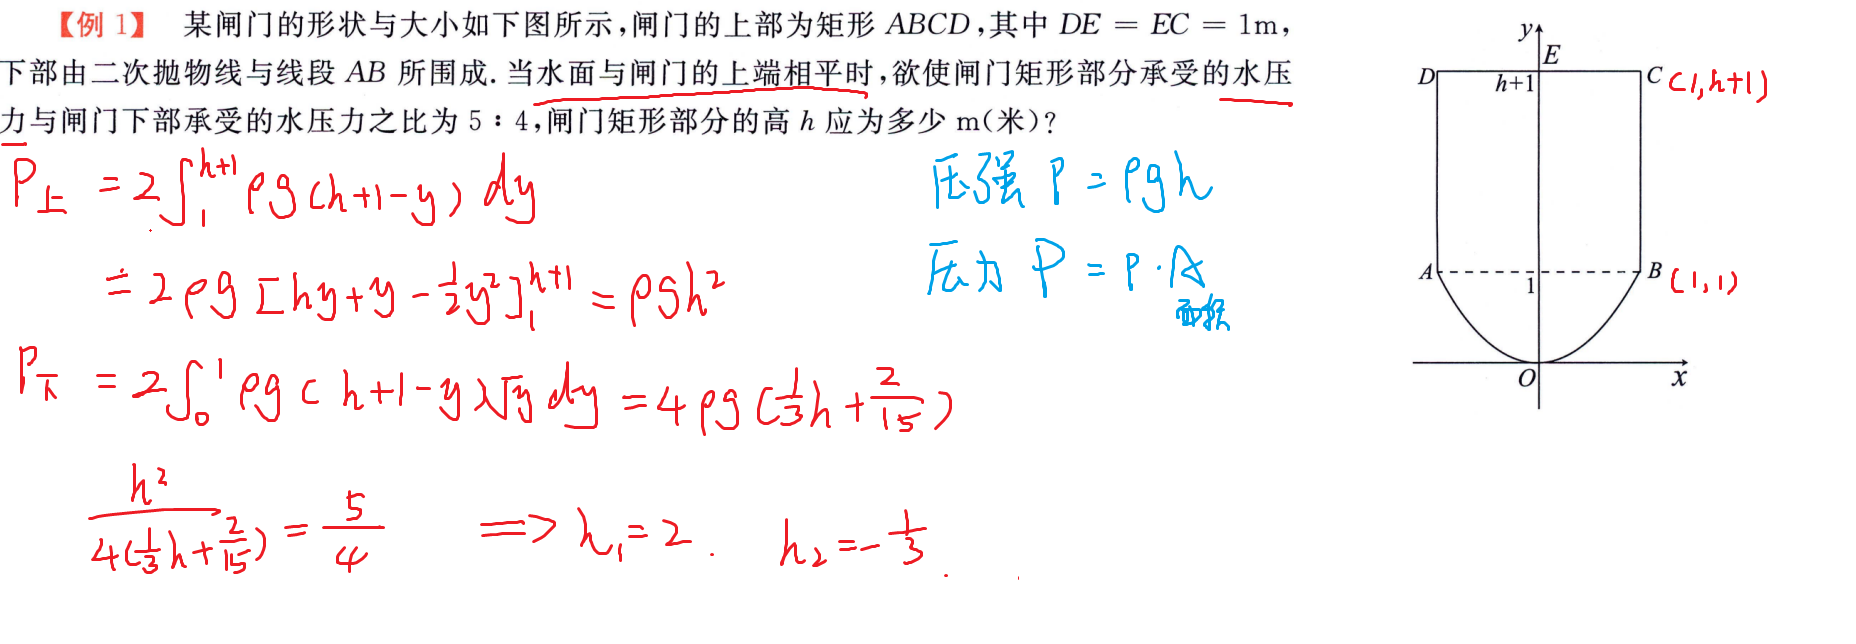 【例 1】 某闸门的形状与大小如下图所示,闸门的上部为矩形 ABCD,其中 DE = EC = 1m,
下部由二次抛物线与线段 AB 所围成. 当水面与闸门的上端相平时,欲使闸门矩形部分承受的水压
力与闸门下部承受的水压力之比为 5 : 4,闸门矩形部分的高 h 应为多少 m(米)?
P上 = 2∫₁ʰ⁺¹ ρg(h+1-y) dy
= 2ρg [hy+y-½y²]₁ʰ⁺¹ = ρgh²
P下 = 2∫₀¹ ρg(h+1-y)√y dy = 4ρg(⅓h+2/15)
h²/4(⅓h+2/15) = 5/4 ⟹ h₁=2. h₂=-⅓.
压强 P = ρgh
压力 P = P·A
面积
y
E
D
h+1
C (1,h+1)
A
1
B (1,1)
O
x